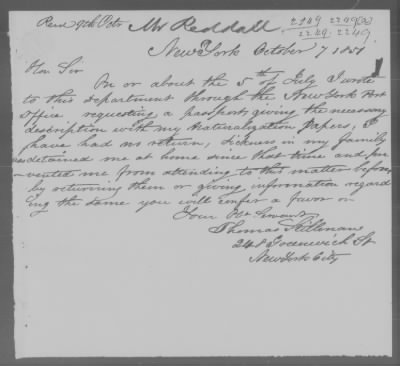 Recd 9th Octr Mr Reddall 2249 2249(2)
2249. 2249
New York October 7 1851
Hon Sir
On or about the 5th of July I wrote
to this Department through the New York Post
Office requesting a passport, giving the necessary
description with my Naturalization Papers, I
have had no return, Sickness in my family
has detained me at home since that time and pre
vented me from attending to this matter before
by returning them or giving information regard
ing the same you will confer a favor on
Your Obt Servant
Thomas
248 Greenwich St
New York City